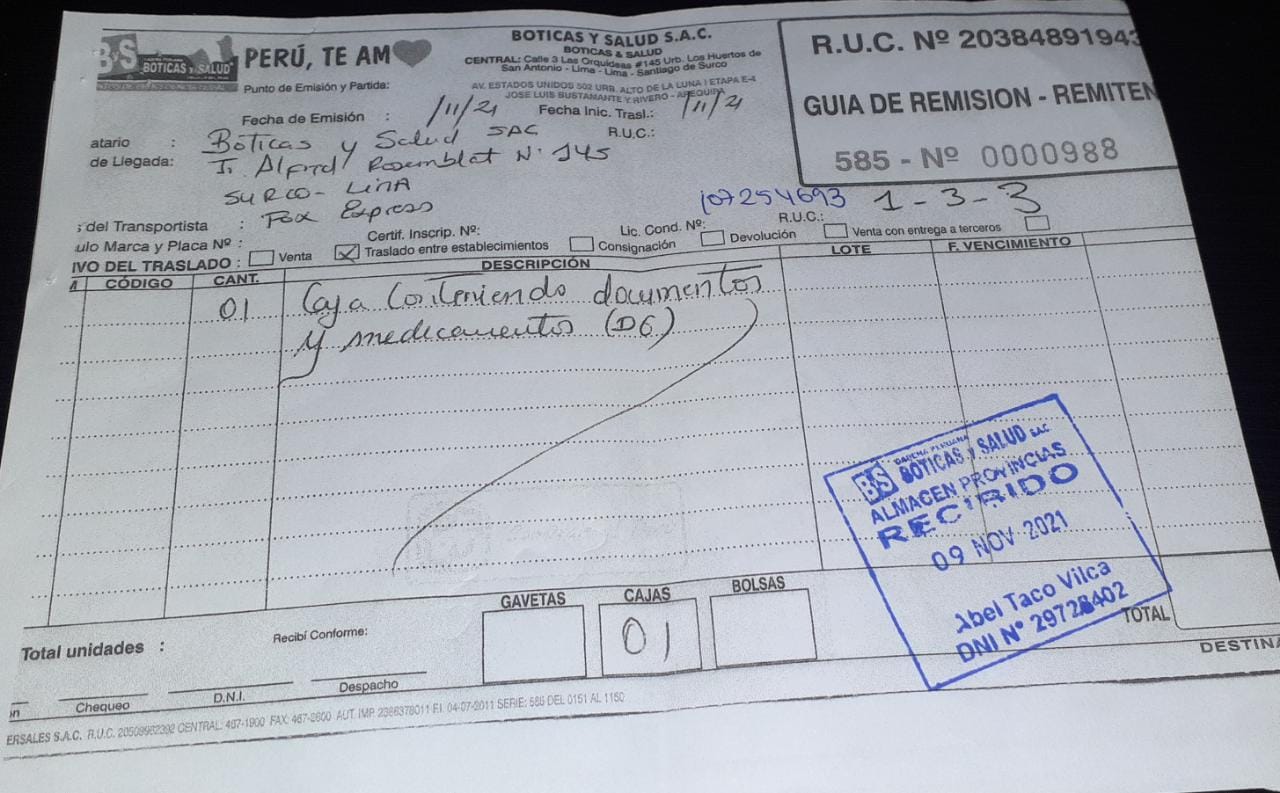 B&S
BOTICAS Y SALUD
PERÚ, TE AM
BOTICAS Y SALUD S.A.C.
BOTICAS & SALUD
CENTRAL: Calle 3 Las Orquideas #145 Urb. Los Huertos de
San Antonio - Lima - Lima - Santiago de Surco
Punto de Emisión y Partida:
AV. ESTADOS UNIDOS 502 URB. ALTO DE LA LUNA I ETAPA E-4
JOSE LUIS BUSTAMANTE Y RIVERO - AREQUIPA
Fecha de Emisión : /11/21 Fecha Inic. Trasl.: /11/21
R.U.C. Nº 2038489194
GUIA DE REMISION - REMITEN
585 - Nº 0000988
atario : Boticas y Salud SAC R.U.C.:
de Llegada: Jr. Alfred Rosemblat Nº 145
SURCO - LIMA
107254693 1 - 3 - 3
del Transportista : Fox Express
Certif. Inscrip. Nº: Lic. Cond. Nº: R.U.C.:
ulo Marca y Placa Nº :
IVO DEL TRASLADO : Venta Traslado entre establecimientos Consignación Devolución Venta con entrega a terceros
CÓDIGO CANT. DESCRIPCIÓN LOTE F. VENCIMIENTO
01 Caja conteniendo documentos
y medicamentos (D6)
BS BOTICAS Y SALUD SAC
ALMACEN PROVINCIAS
RECIBIDO
09 NOV 2021
Abel Taco Vilca
DNI Nº 29728402
GAVETAS CAJAS BOLSAS
01
TOTAL
Total unidades :
Recibí Conforme:
DESTINA
Chequeo D.N.I. Despacho
ERSALES S.A.C. R.U.C. 20508962392 CENTRAL: 467-1900 FAX: 467-2600 AUT. IMP. 2366378011 F.I. 04-07-2011 SERIE: 585 DEL 0151 AL 1150